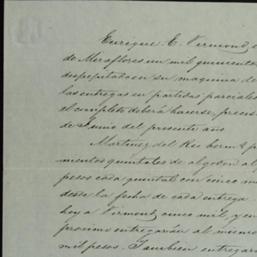 Enrique C. Vermont, 
de Miraflores un mil quinientos
despepitada en su maquina de
las entregas en partidas parciales
el completo deberá hacerse, precis
de Junio del presente año
Martinez del Rio herm
mientos quintales de algodon al
pesos cada quintal con cinco
desde la fecha de cada entrega
hoy a Vermont, cinco mil, y en
procsimo entregarán al mismo
mil pesos. Tambien entregar